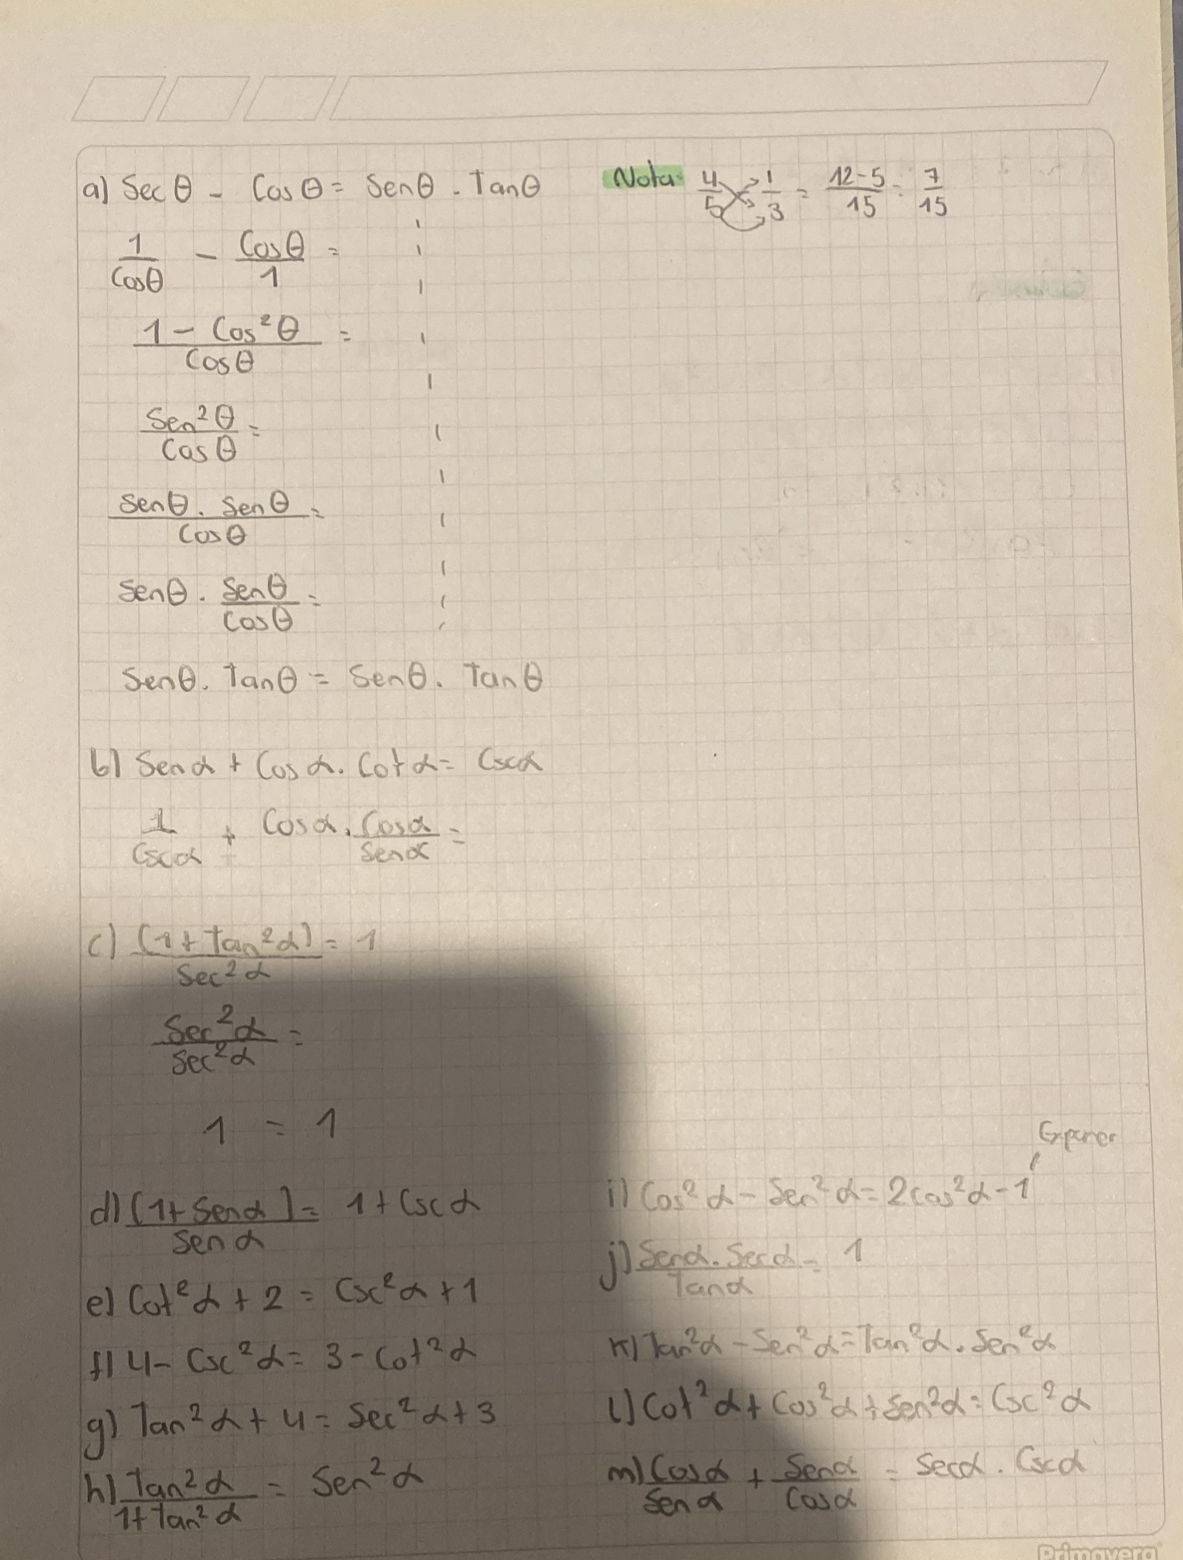 a) Sec θ - Cos θ = Sen θ . Tan θ
Nota: 4/5 - 1/3 = 12-5/15 = 7/15
1/Cos θ - Cos θ/1 =
1 - Cos² θ/Cos θ =
Sen² θ/Cos θ =
Sen θ . Sen θ/Cos θ =
Sen θ . Sen θ/Cos θ =
Sen θ . Tan θ = Sen θ . Tan θ
b) Sen α + Cos α . Cot α = Csc α
1/Csc α + Cos α . Cos α/Sen α =
c) (1 + Tan² α)/Sec² α = 1
Sec² α/Sec² α =
1 = 1
d) (1 + Sen α)/Sen α = 1 + Csc α
e) Cot² α + 2 = Csc² α + 1
f) 4 - Csc² α = 3 - Cot² α
g) Tan² α + 4 = Sec² α + 3
h) Tan² α/1 + Tan² α = Sen² α
Exponer
i) Cos² α - Sen² α = 2 Cos² α - 1
j) Sen α . Sec α/Tan α = 1
k) Tan² α - Sen² α = Tan² α . Sen² α
l) Cot² α + Cos² α + Sen² α = Csc² α
m) Cos α/Sen α + Sen α/Cos α = Sec α . Csc α
Primavera